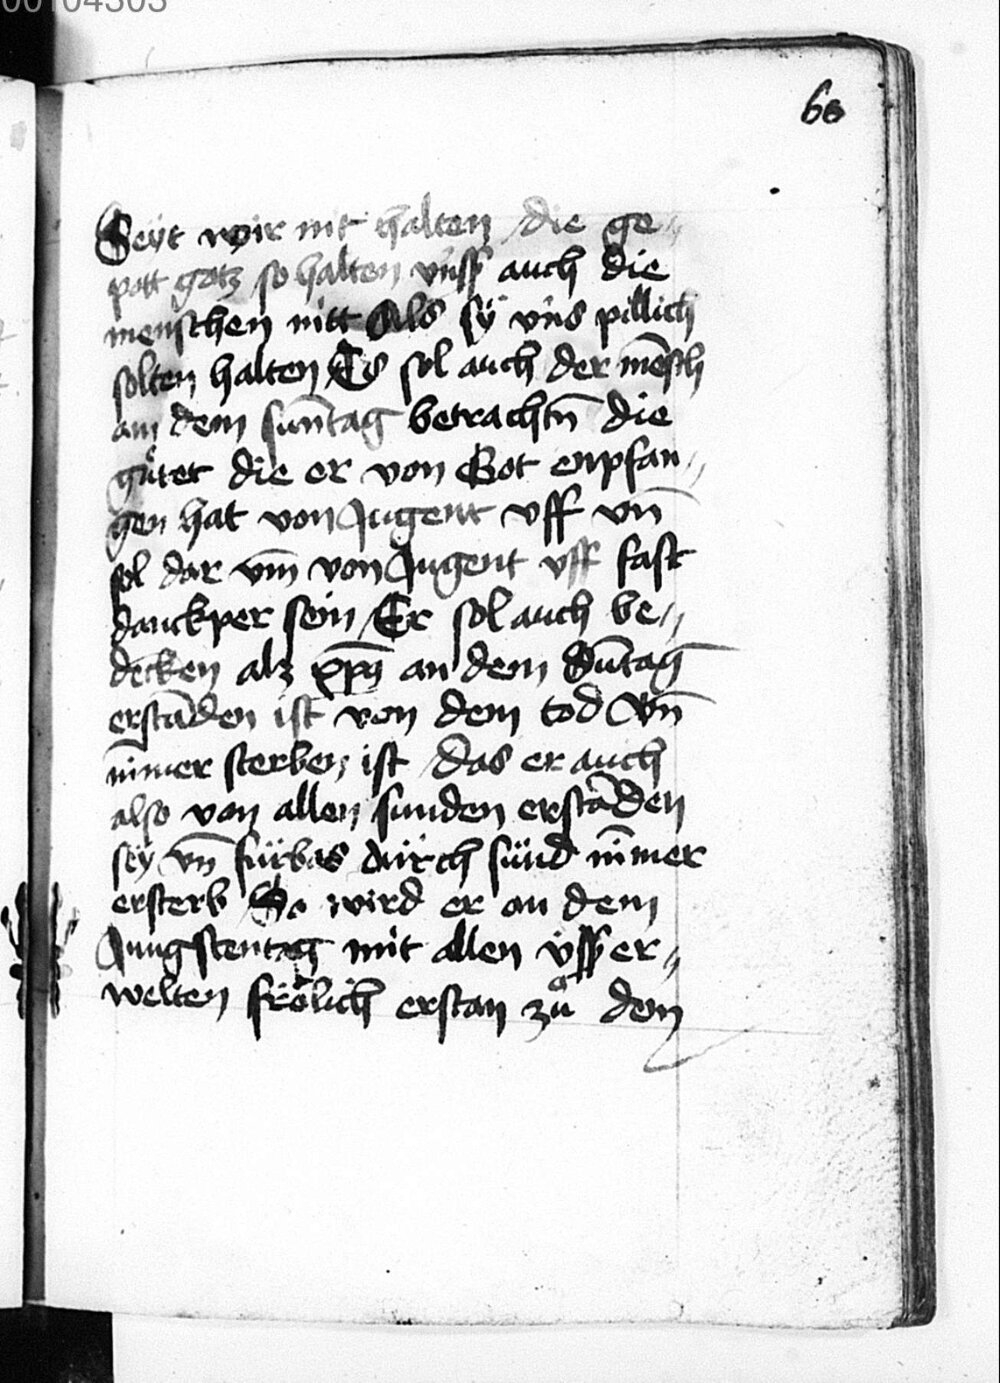 00104303
60
Seyt wir nit halten die ge„
pott gotz so halten vnß auch die
menschen nitt Als sÿ vns pillich
solten halten Es sol auch der mēsch
am dem sun̄tag betrachtn̄ die
gůtet die er von Got enpfan„
gen hat von Jugent vff vn̄
sol dar vm̄ von Jugent vff fast
danckper sein Er sol auch be„
decken alz xp̄s an dem Sūtag
erstāden ist von dem tod Vn̄
nīmer sterben ist das er auch
also von allen sunden erstāden
sey vn̄ fürbas durch sünd nīmer
ersterb So wird er an dem
Jungstentag mit allen vßer„
welten frölich erstan zů dem